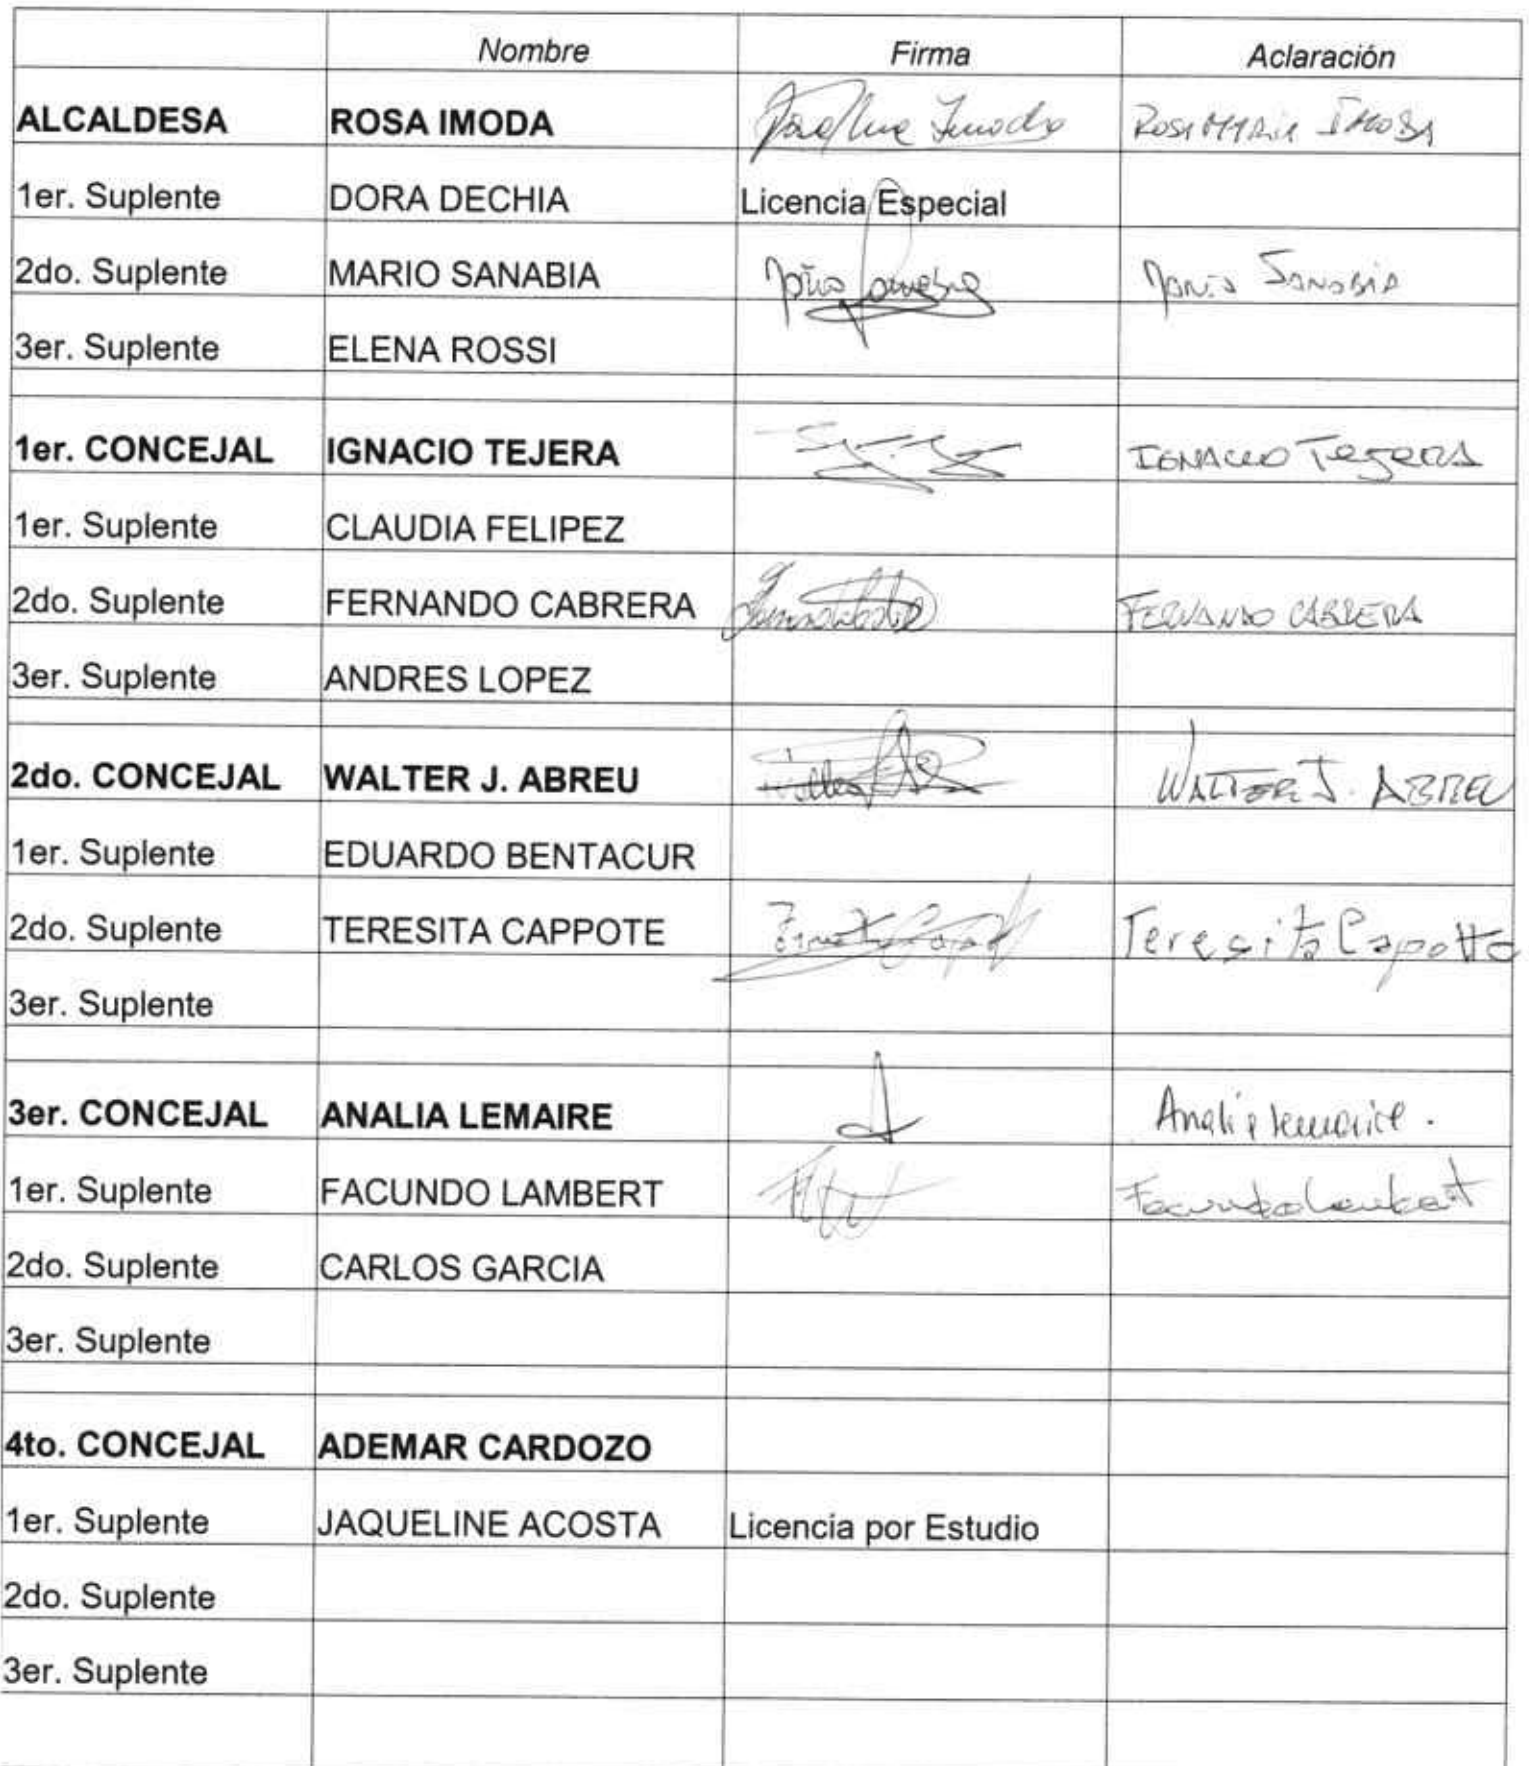 Nombre Firma Aclaración
ALCALDESA ROSA IMODA Rosa María Imoda
1er. Suplente DORA DECHIA Licencia Especial
2do. Suplente MARIO SANABIA Mario Sanabia
3er. Suplente ELENA ROSSI
1er. CONCEJAL IGNACIO TEJERA IGNACIO Tejera
1er. Suplente CLAUDIA FELIPEZ
2do. Suplente FERNANDO CABRERA FERNANDO CABRERA
3er. Suplente ANDRES LOPEZ
2do. CONCEJAL WALTER J. ABREU WALTER J. ABREU
1er. Suplente EDUARDO BENTACUR
2do. Suplente TERESITA CAPPOTE Teresita Capotte
3er. Suplente
3er. CONCEJAL ANALIA LEMAIRE Analia Lemaire.
1er. Suplente FACUNDO LAMBERT Facundo Lambert
2do. Suplente CARLOS GARCIA
3er. Suplente
4to. CONCEJAL ADEMAR CARDOZO
1er. Suplente JAQUELINE ACOSTA Licencia por Estudio
2do. Suplente
3er. Suplente